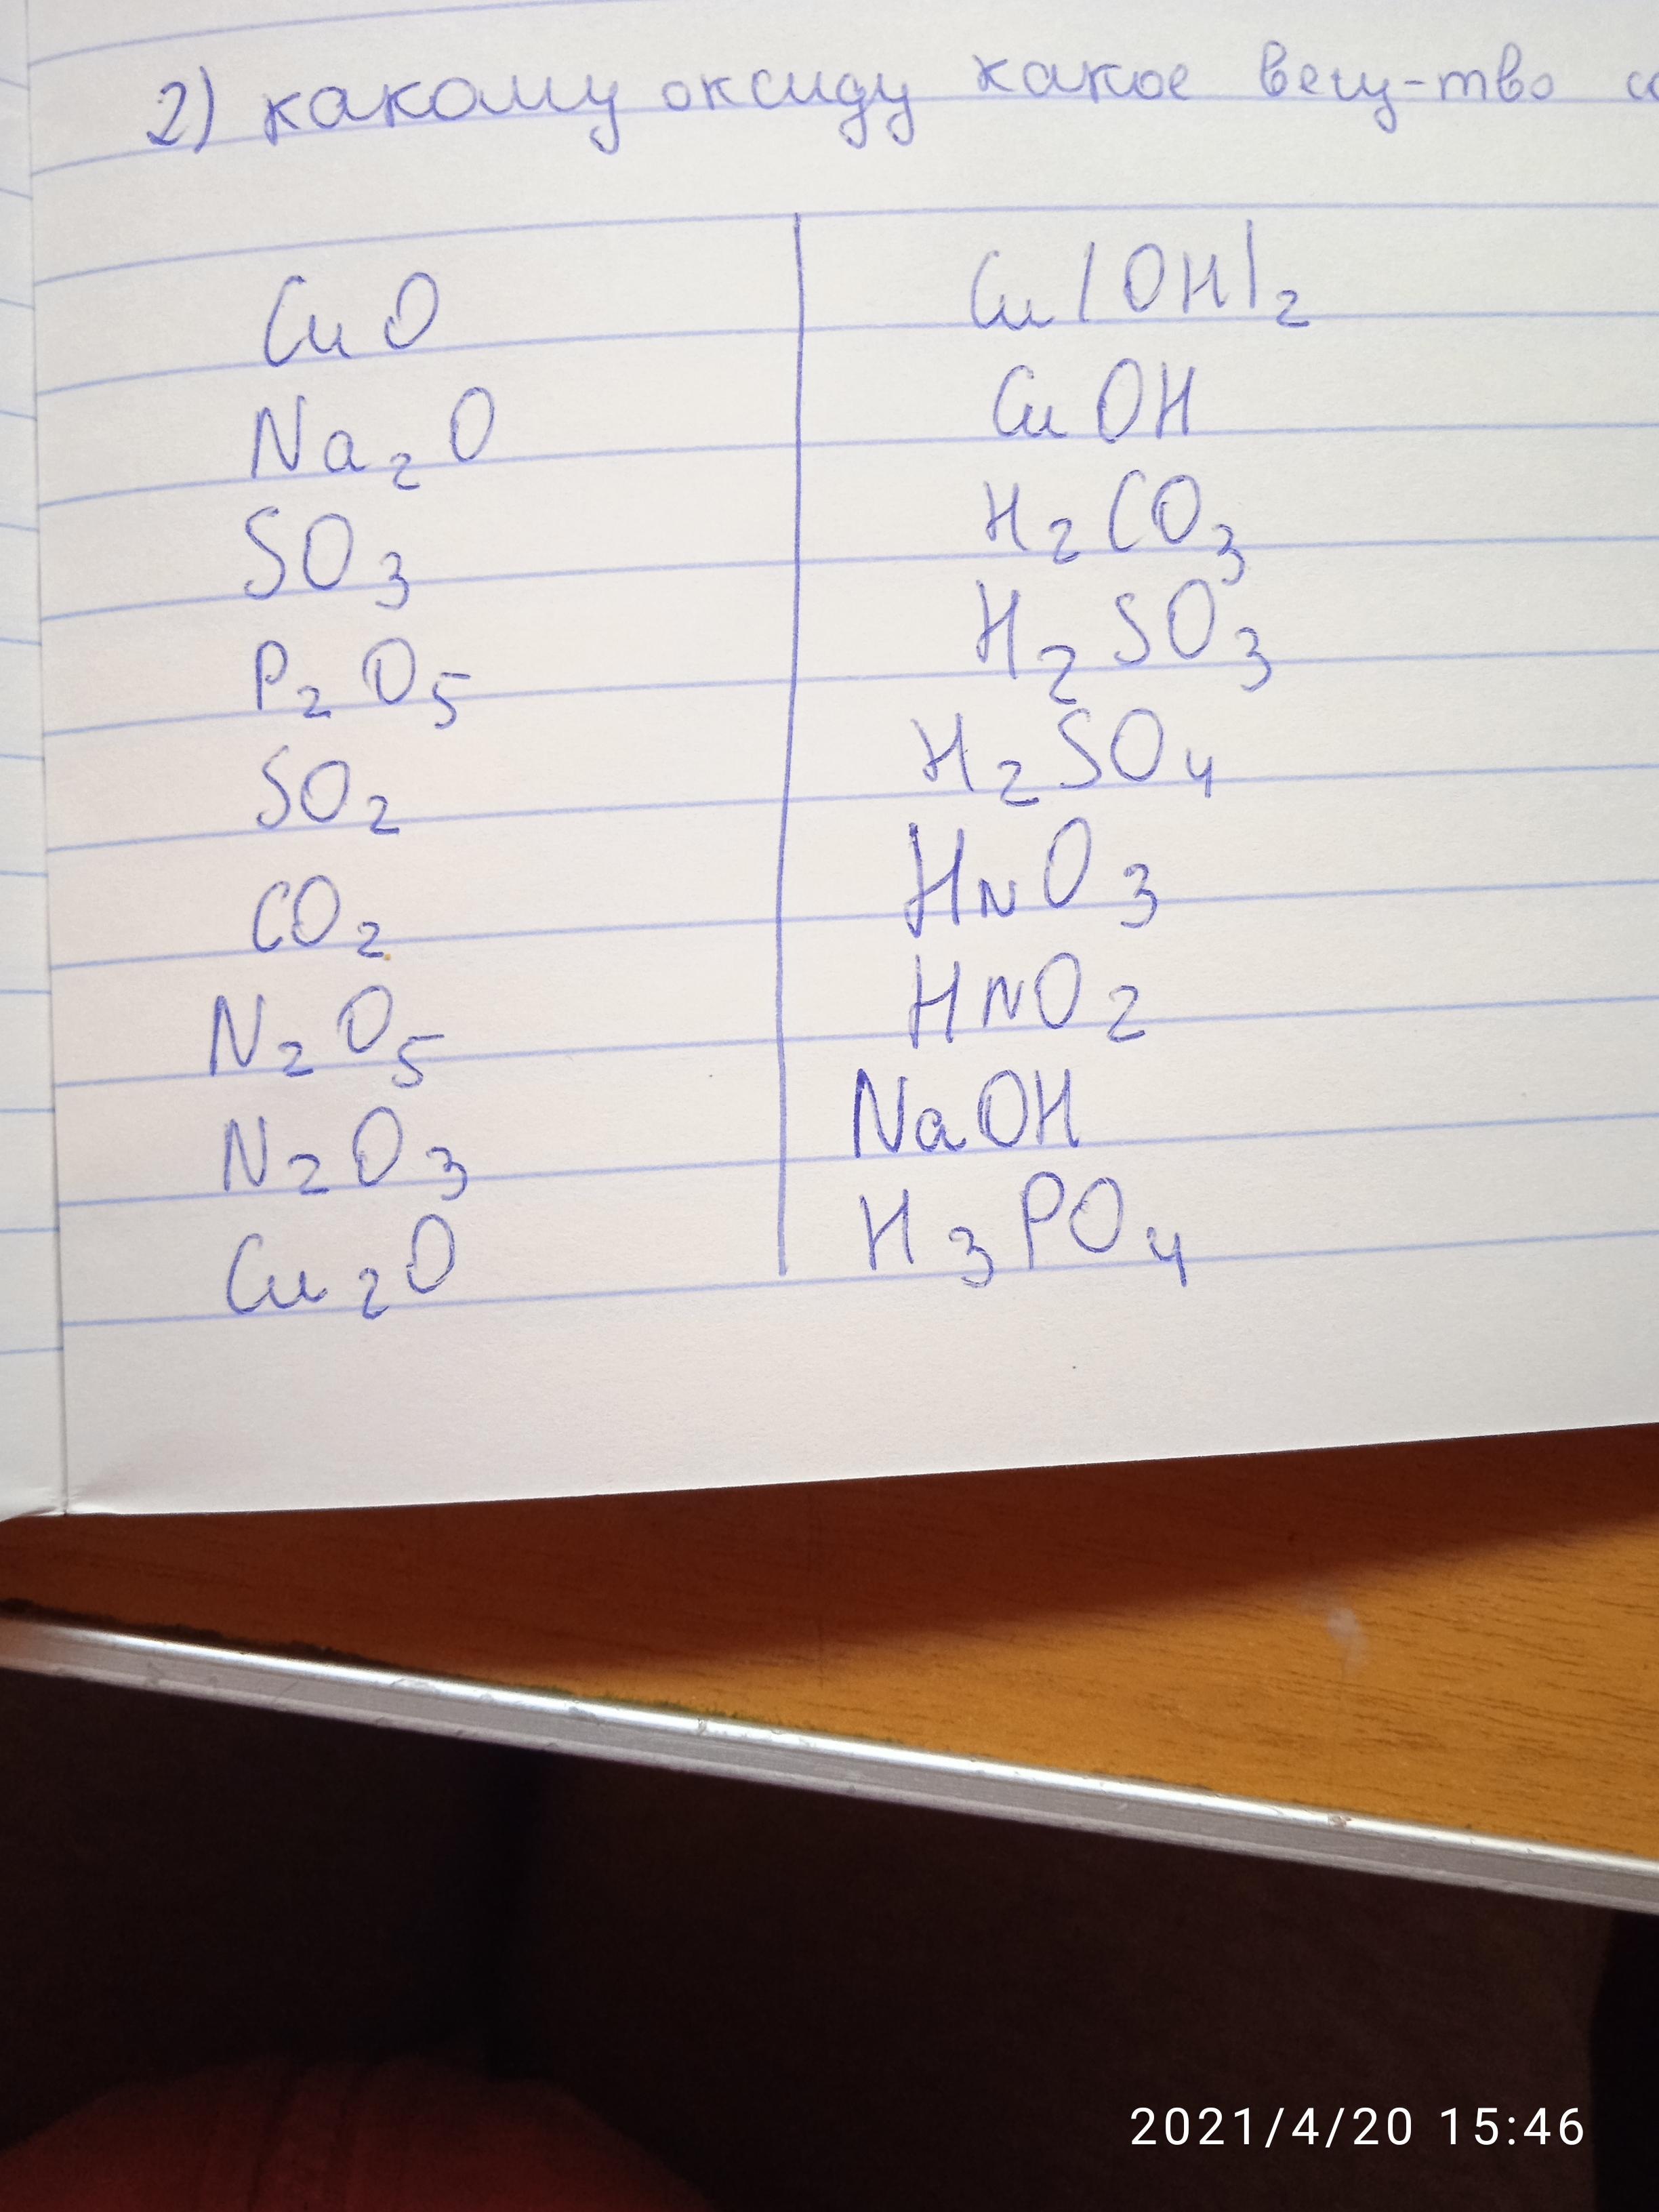 2) какому оксиду какое вещ-тво со
CuO Cu(OH)₂
Na₂O CuOH
SO₃ H₂CO₃
P₂O₅ H₂SO₃
SO₂ H₂SO₄
CO₂ HNO₃
N₂O₅ HNO₂
N₂O₃ NaOH
Cu₂O H₃PO₄
2021/4/20 15:46